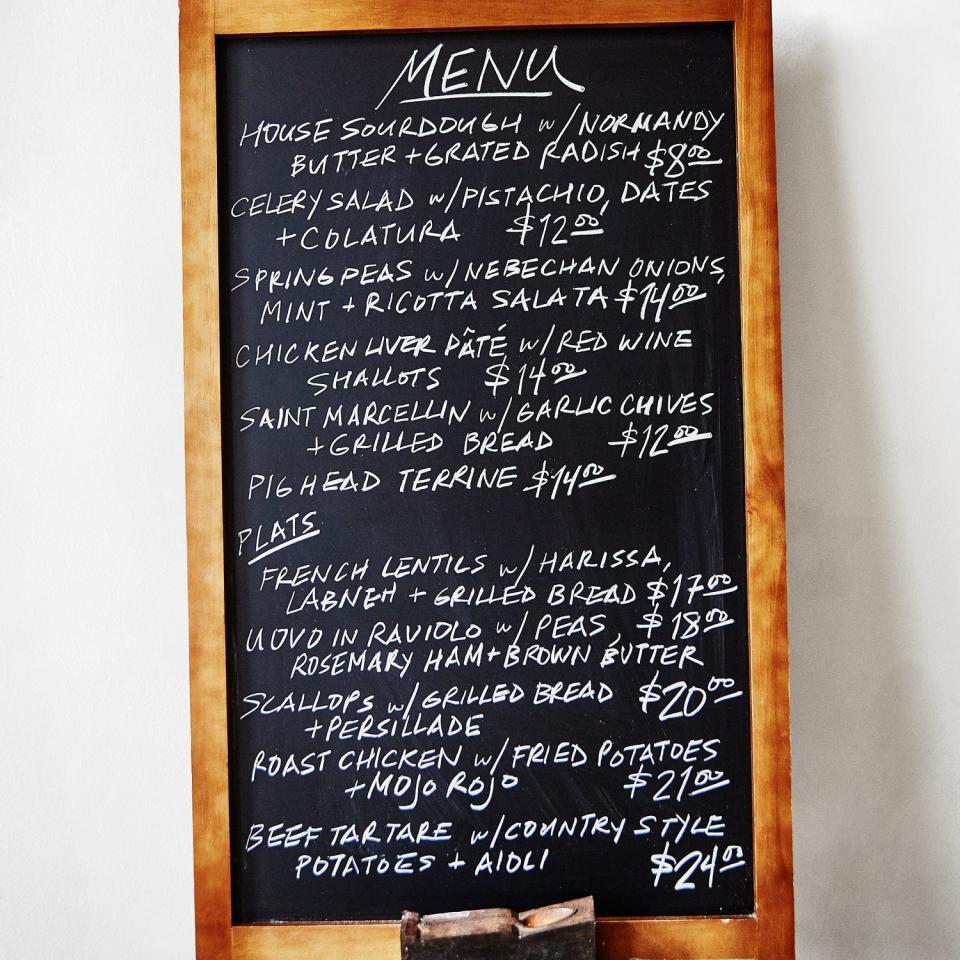 MENU
HOUSE SOURDOUGH w/NORMANDY
BUTTER + GRATED RADISH $8.00
CELERY SALAD w/PISTACHIO, DATES
+ COLATURA $12.00
SPRING PEAS w/NEBECHAN ONIONS,
MINT + RICOTTA SALATA $14.00
CHICKEN LIVER PÂTÉ w/RED WINE
SHALLOTS $14.00
SAINT MARCELLIN w/GARLIC CHIVES
+ GRILLED BREAD $12.00
PIG HEAD TERRINE $14.00
PLATS
FRENCH LENTILS w/HARISSA,
LABNEH + GRILLED BREAD $17.00
UOVO IN RAVIOLO w/PEAS, $18.00
ROSEMARY HAM + BROWN BUTTER
SCALLOPS w/GRILLED BREAD $20.00
+ PERSILLADE
ROAST CHICKEN w/FRIED POTATOES
+ MOJO ROJO $21.00
BEEF TARTARE w/COUNTRY STYLE
POTATOES + AIOLI $24.00